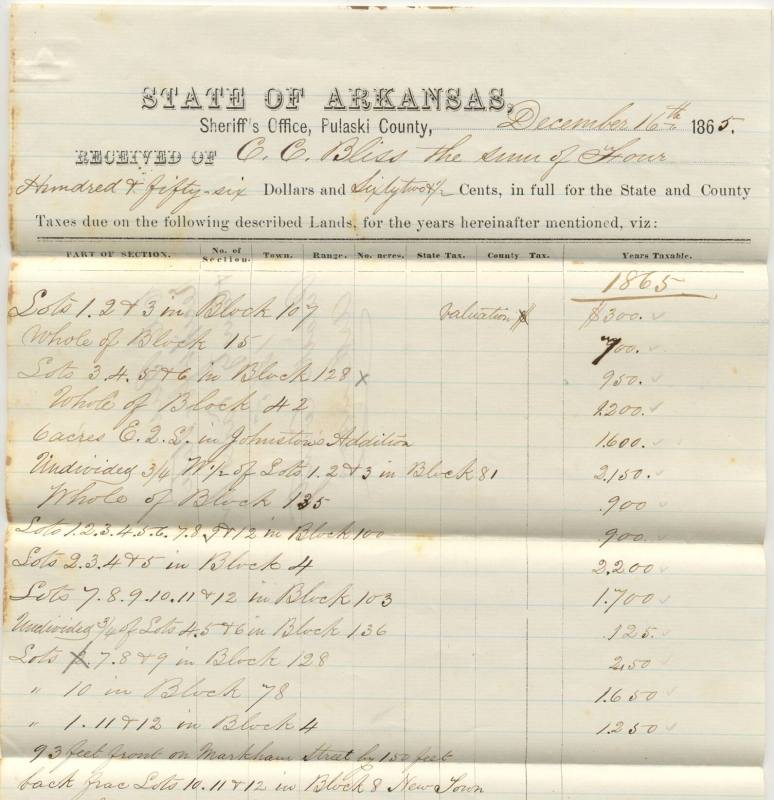 STATE OF ARKANSAS,
Sheriff's Office, Pulaski County, December 16th 1865.
RECEIVED OF C. C. Bliss the sum of Four
Hundred & fifty-six Dollars and Sixty two & 1/2 Cents, in full for the State and County
Taxes due on the following described Lands, for the years hereinafter mentioned, viz:
PART OF SECTION. No. of Section. Town. Range. No. acres. State Tax. County Tax. Years Taxable.
1865
Lots 1. 2 & 3 in Block 107 valuation $ $300.
Whole of Block 15 700.
Lots 3. 4. 5 & 6 in Block 128 x 950.
Whole of Block 42 1200.
6 acres E. 2. L. in Johnstons Addition 1.600.
Undivided 3/4 W 1/2 of Lots 1. 2 & 3 in Block 81 2.150.
Whole of Block 135 .900
Lots 1. 2. 3. 4. 5. 6. 7. 8. 9 & 12 in Block 100 .900.
Lots 2. 3. 4 & 5 in Block 4 2.200
Lots 7. 8. 9. 10. 11 & 12 in Block 103 1.700
Undivided 3/4 of Lots 4. 5 & 6 in Block 136 .125.
Lots 7. 8 & 9 in Block 128 250
" 10 in Block 78 1.650
" 1. 11 & 12 in Block 4 1.250
93 feet front on Markham Street by 150 feet
back frac Lots 10. 11 & 12 in Block 8 New Town